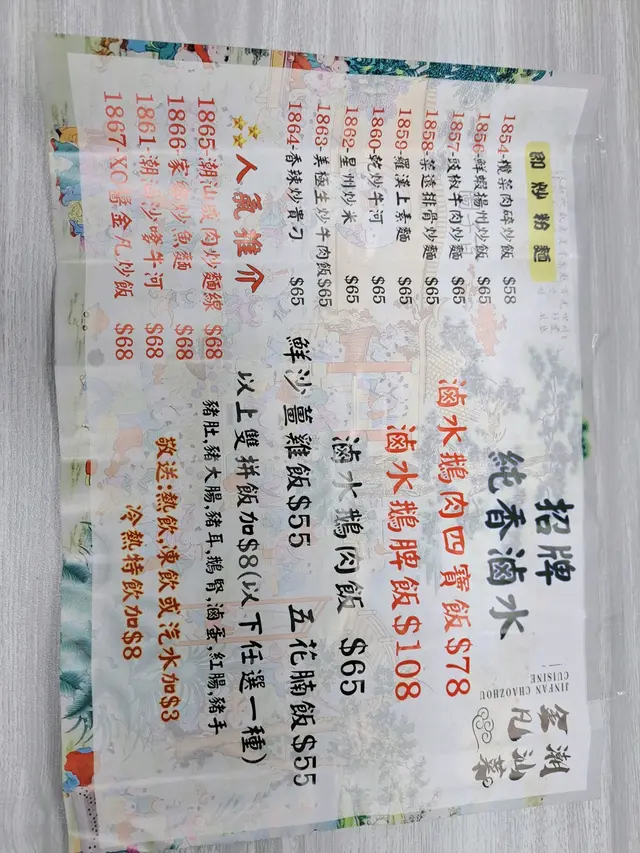 金凡潮汕菜
JINFAN CHAOZHOU
CUISINE
招牌
純香滷水
滷水鵝肉四寶飯$78
滷水鵝脾飯$108
滷水鵝肉飯 $65
鮮沙薑雞飯$55 五花腩飯$55
以上雙拼飯加$8(以下任選一種)
豬肚,豬大腸,豬耳,鵝腎,滷蛋,紅腸,豬手
敬送:熱飲,凍飲或汽水加$3
冷熱特飲加$8
即炒粉麵
1854-欖菜肉碎炒飯 $58
1856-鮮蝦揚州炒飯 $65
1857-豉椒牛肉炒麵 $65
1858-菜遠排骨炒麵 $65
1859-羅漢上素麵 $65
1860-乾炒牛河 $65
1862-星州炒米 $65
1863-美極生炒牛肉飯$65
1864-香辣炒貴刁 $65
人氣推介
1865-潮汕瘦肉炒麵線 $68
1866-家鄉炒魚麵 $68
1861-潮汕沙嗲牛河 $68
1867-XO醬金凡炒飯 $68